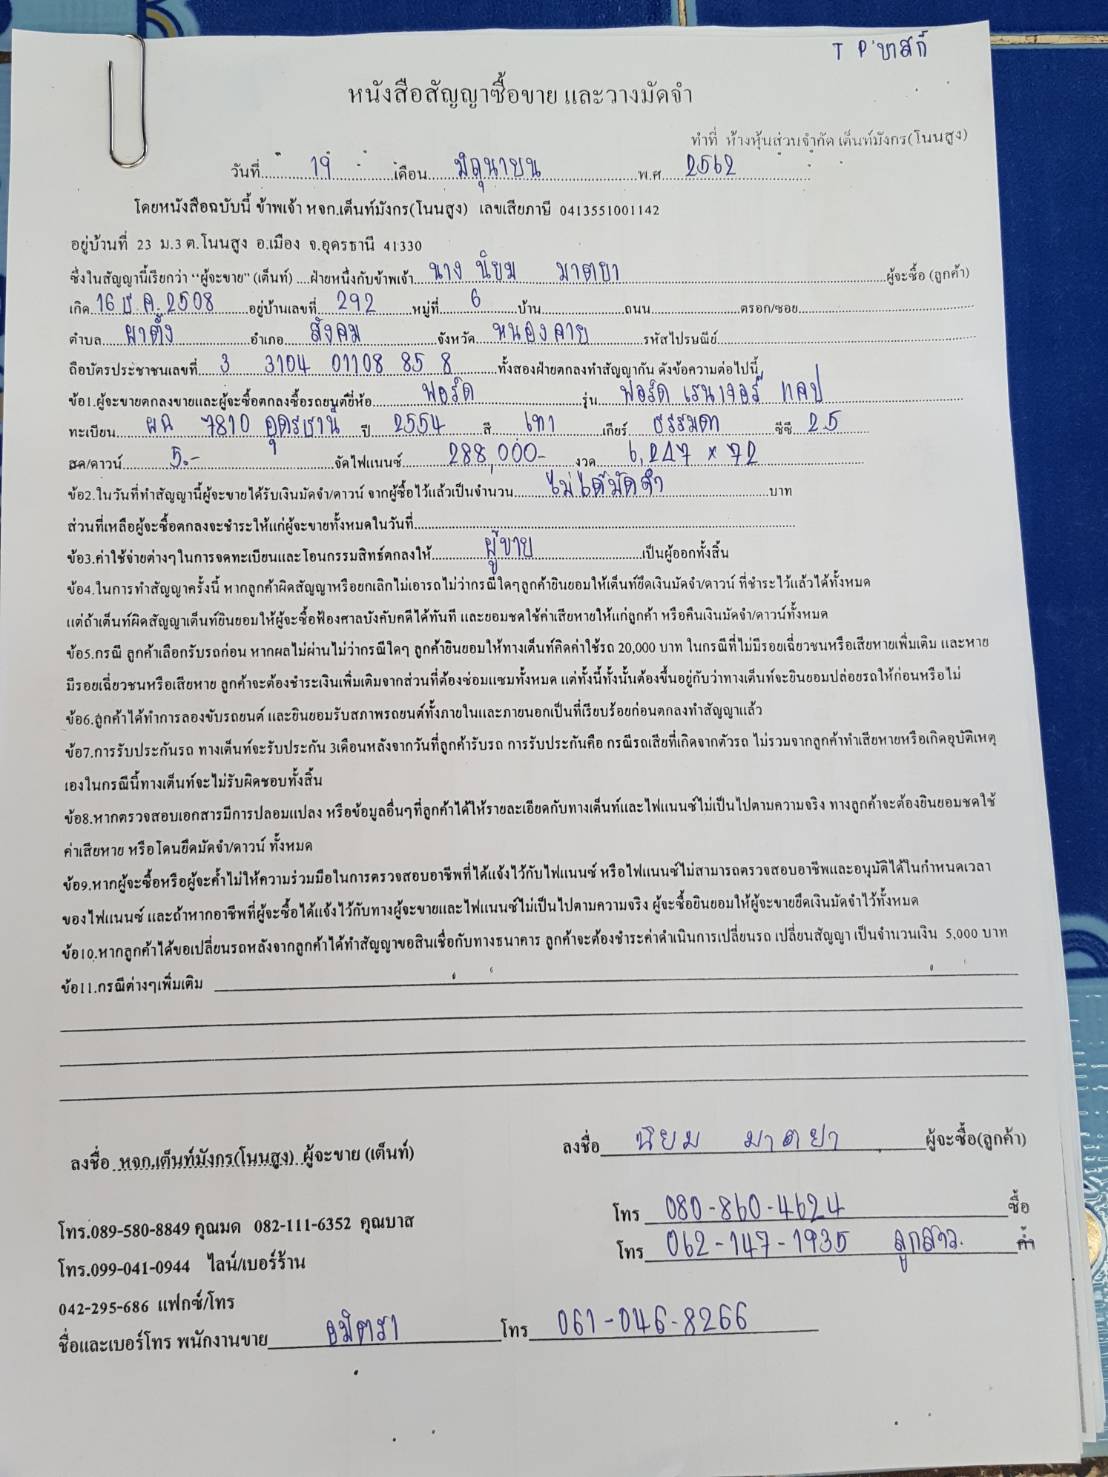 T P บาสก์
หนังสือสัญญาซื้อขาย และวางมัดจำ
ทำที่ ห้างหุ้นส่วนจำกัด เต็นท์มังกร(โนนสูง)
วันที่ 19 เดือน มิถุนายน พ.ศ 2562
โดยหนังสือฉบับนี้ ข้าพเจ้า หจก.เต็นท์มังกร(โนนสูง) เลขเสียภาษี 0413551001142
อยู่บ้านที่ 23 ม.3 ต.โนนสูง อ.เมือง จ.อุดรธานี 41330
ซึ่งในสัญญานี้เรียกว่า "ผู้จะขาย" (เต็นท์) ....ฝ่ายหนึ่งกับข้าพเจ้า นาง นิยม มาตยา ผู้จะซื้อ (ลูกค้า)
เกิด 16 ธ.ค. 2508 อยู่บ้านเลขที่ 292 หมู่ที่ 6 บ้าน ถนน ตรอก/ซอย
ตำบล ผาตั้ง อำเภอ สังคม จังหวัด หนองคาย รหัสไปรษณีย์
ถือบัตรประชาชนเลขที่ 3 3104 01108 85 8 ทั้งสองฝ่ายตกลงทำสัญญากัน ดังข้อความต่อไปนี้
ข้อ1.ผู้จะขายตกลงขายและผู้จะซื้อตกลงซื้อรถยนต์ยี่ห้อ ฟอร์ด รุ่น ฟอร์ด เรนเจอร์ แคป
ทะเบียน ผฉ 7810 อุดรธานี ปี 2554 สี เทา เกียร์ ธรรมดา ซีซี 2.5
สด/ดาวน์ 5.- จัดไฟแนนซ์ 288,000- งวด 6,247 x 72
ข้อ2.ในวันที่ทำสัญญานี้ผู้จะขายได้รับเงินมัดจำ/ดาวน์ จากผู้ซื้อไว้แล้วเป็นจำนวน ไม่ได้มัดจำ บาท
ส่วนที่เหลือผู้จะซื้อตกลงจะชำระให้แก่ผู้จะขายทั้งหมดในวันที่
ข้อ3.ค่าใช้จ่ายต่างๆในการจดทะเบียนและโอนกรรมสิทธ์ตกลงให้ ผู้ขาย เป็นผู้ออกทั้งสิ้น
ข้อ4.ในการทำสัญญาครั้งนี้ หากลูกค้าผิดสัญญาหรือยกเลิกไม่เอารถไม่ว่ากรณีใดๆลูกค้ายินยอมให้เต็นท์ยึดเงินมัดจำ/ดาวน์ ที่ชำระไว้แล้วได้ทั้งหมด
แต่ถ้าเต็นท์ผิดสัญญาเต็นท์ยินยอมให้ผู้จะซื้อฟ้องศาลบังคับคดีได้ทันที และยอมชดใช้ค่าเสียหายให้แก่ลูกค้า หรือคืนเงินมัดจำ/ดาวน์ทั้งหมด
ข้อ5.กรณี ลูกค้าเลือกรับรถก่อน หากผลไม่ผ่านไม่ว่ากรณีใดๆ ลูกค้ายินยอมให้ทางเต็นท์คิดค่าใช้รถ 20,000 บาท ในกรณีที่ไม่มีรอยเฉี่ยวชนหรือเสียหายเพิ่มเติม และหาย
มีรอยเฉี่ยวชนหรือเสียหาย ลูกค้าจะต้องชำระเงินเพิ่มเติมจากส่วนที่ต้องซ่อมแซมทั้งหมด แต่ทั้งนี้ทั้งนั้นต้องขึ้นอยู่กับว่าทางเต็นท์จะยินยอมปล่อยรถให้ก่อนหรือไม่
ข้อ6.ลูกค้าได้ทำการลองขับรถยนต์ และยินยอมรับสภาพรถยนต์ทั้งภายในและภายนอกเป็นที่เรียบร้อยก่อนตกลงทำสัญญาแล้ว
ข้อ7.การรับประกันรถ ทางเต็นท์จะรับประกัน 3เดือนหลังจากวันที่ลูกค้ารับรถ การรับประกันคือ กรณีรถเสียที่เกิดจากตัวรถ ไม่รวมจากลูกค้าทำเสียหายหรือเกิดอุบัติเหตุ
เองในกรณีนี้ทางเต็นท์จะไม่รับผิดชอบทั้งสิ้น
ข้อ8.หากตรวจสอบเอกสารมีการปลอมแปลง หรือข้อมูลอื่นๆที่ลูกค้าได้ให้รายละเอียดกับทางเต็นท์และไฟแนนซ์ไม่เป็นไปตามความจริง ทางลูกค้าจะต้องยินยอมชดใช้
ค่าเสียหาย หรือโดนยึดมัดจำ/ดาวน์ ทั้งหมด
ข้อ9.หากผู้จะซื้อหรือผู้จะค้ำไม่ให้ความร่วมมือในการตรวจสอบอาชีพที่ได้แจ้งไว้กับไฟแนนซ์ หรือไฟแนนซ์ไม่สามารถตรวจสอบอาชีพและอนุมัติได้ในกำหนดเวลา
ของไฟแนนซ์ และถ้าหากอาชีพที่ผู้จะซื้อได้แจ้งไว้กับทางผู้จะขายและไฟแนนซ์ไม่เป็นไปตามความจริง ผู้จะซื้อยินยอมให้ผู้จะขายยึดเงินมัดจำไว้ทั้งหมด
ข้อ10.หากลูกค้าได้ขอเปลี่ยนรถหลังจากลูกค้าได้ทำสัญญาขอสินเชื่อกับทางธนาคาร ลูกค้าจะต้องชำระค่าดำเนินการเปลี่ยนรถ เปลี่ยนสัญญา เป็นจำนวนเงิน 5,000 บาท
ข้อ11.กรณีต่างๆเพิ่มเติม
ลงชื่อ หจก.เต็นท์มังกร(โนนสูง) ผู้จะขาย (เต็นท์) ลงชื่อ นิยม มาตยา ผู้จะซื้อ(ลูกค้า)
โทร.089-580-8849 คุณมด 082-111-6352 คุณบาส โทร 080-860-4624 ซื้อ
โทร.099-041-0944 ไลน์/เบอร์ร้าน โทร 062-147-1935 ลูกสาว ค้ำ
042-295-686 แฟกซ์/โทร
ชื่อและเบอร์โทร พนักงานขาย อมิตรา โทร 061-046-8266